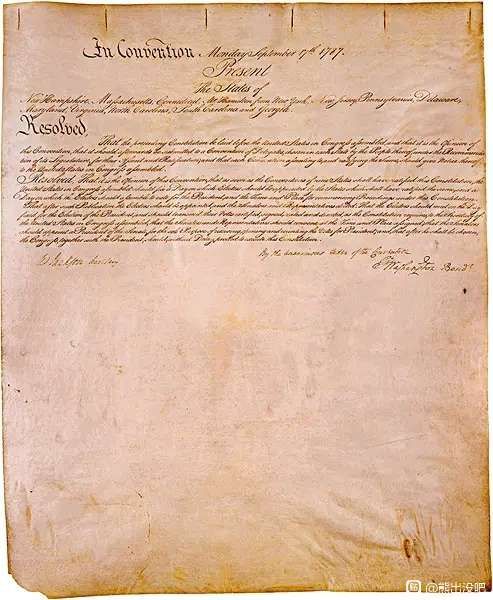 In Convention Monday September 17th 1787.
Present
The States of
New Hampshire, Massachusetts, Connecticut, Mr Hamilton from New York, New Jersey, Pennsylvania, Delaware,
Maryland, Virginia, North Carolina, South Carolina and Georgia.
Resolved,
That the preceeding Constitution be laid before the United States in Congress assembled, and that it is the Opinion of
this Convention, that it should afterwards be submitted to a Convention of Delegates, chosen in each State by the People thereof, under the Recommendation
of its Legislature, for their Assent and Ratification; and that each Convention assenting to, and ratifying the Same, should give Notice thereof
to the United States in Congress assembled.
Resolved, That it is the Opinion of this Convention, that as soon as the Conventions of nine States shall have ratified this Constitution, the
United States in Congress assembled should fix a Day on which Electors should be appointed by the States which shall have ratified the same, and a
Day on which the Electors should assemble to vote for the President, and the Time and Place for commencing Proceedings under this Constitution.
That after such Publication the Electors should be appointed, and the Senators and Representatives elected: That the Electors should meet on the Day
fixed for the Election of the President, and should transmit their Votes certified,
should appoint a President of the Senate, for the sole Purpose of receiving, opening and counting the Votes for President; and, that after he shall be chosen,
the Congress, together with the President, should, without Delay, proceed to execute this Constitution.
By the unanimous Order of the Convention
W. Jackson Secretary
Go Washington Presidt
@熊出没吧